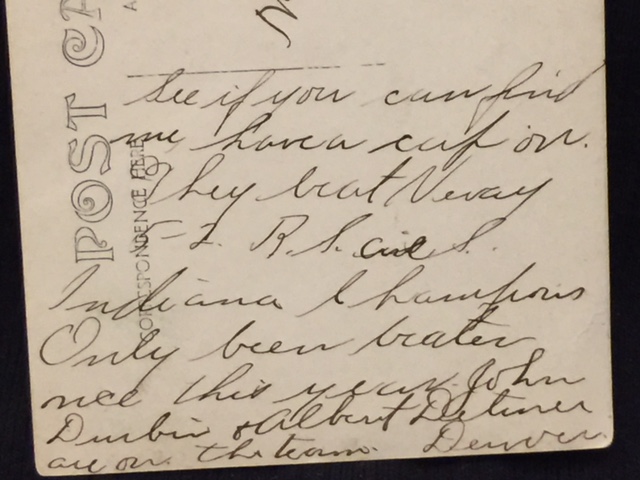 POST CA
CORRESPONDENCE HERE
See if you can find
me have a cap on.
They beat Vevay
5-2. R. S.
Indiana Champions
Only been beaten
nce this year. John
Durbin & Albert Detmer
are on the team. Denver.